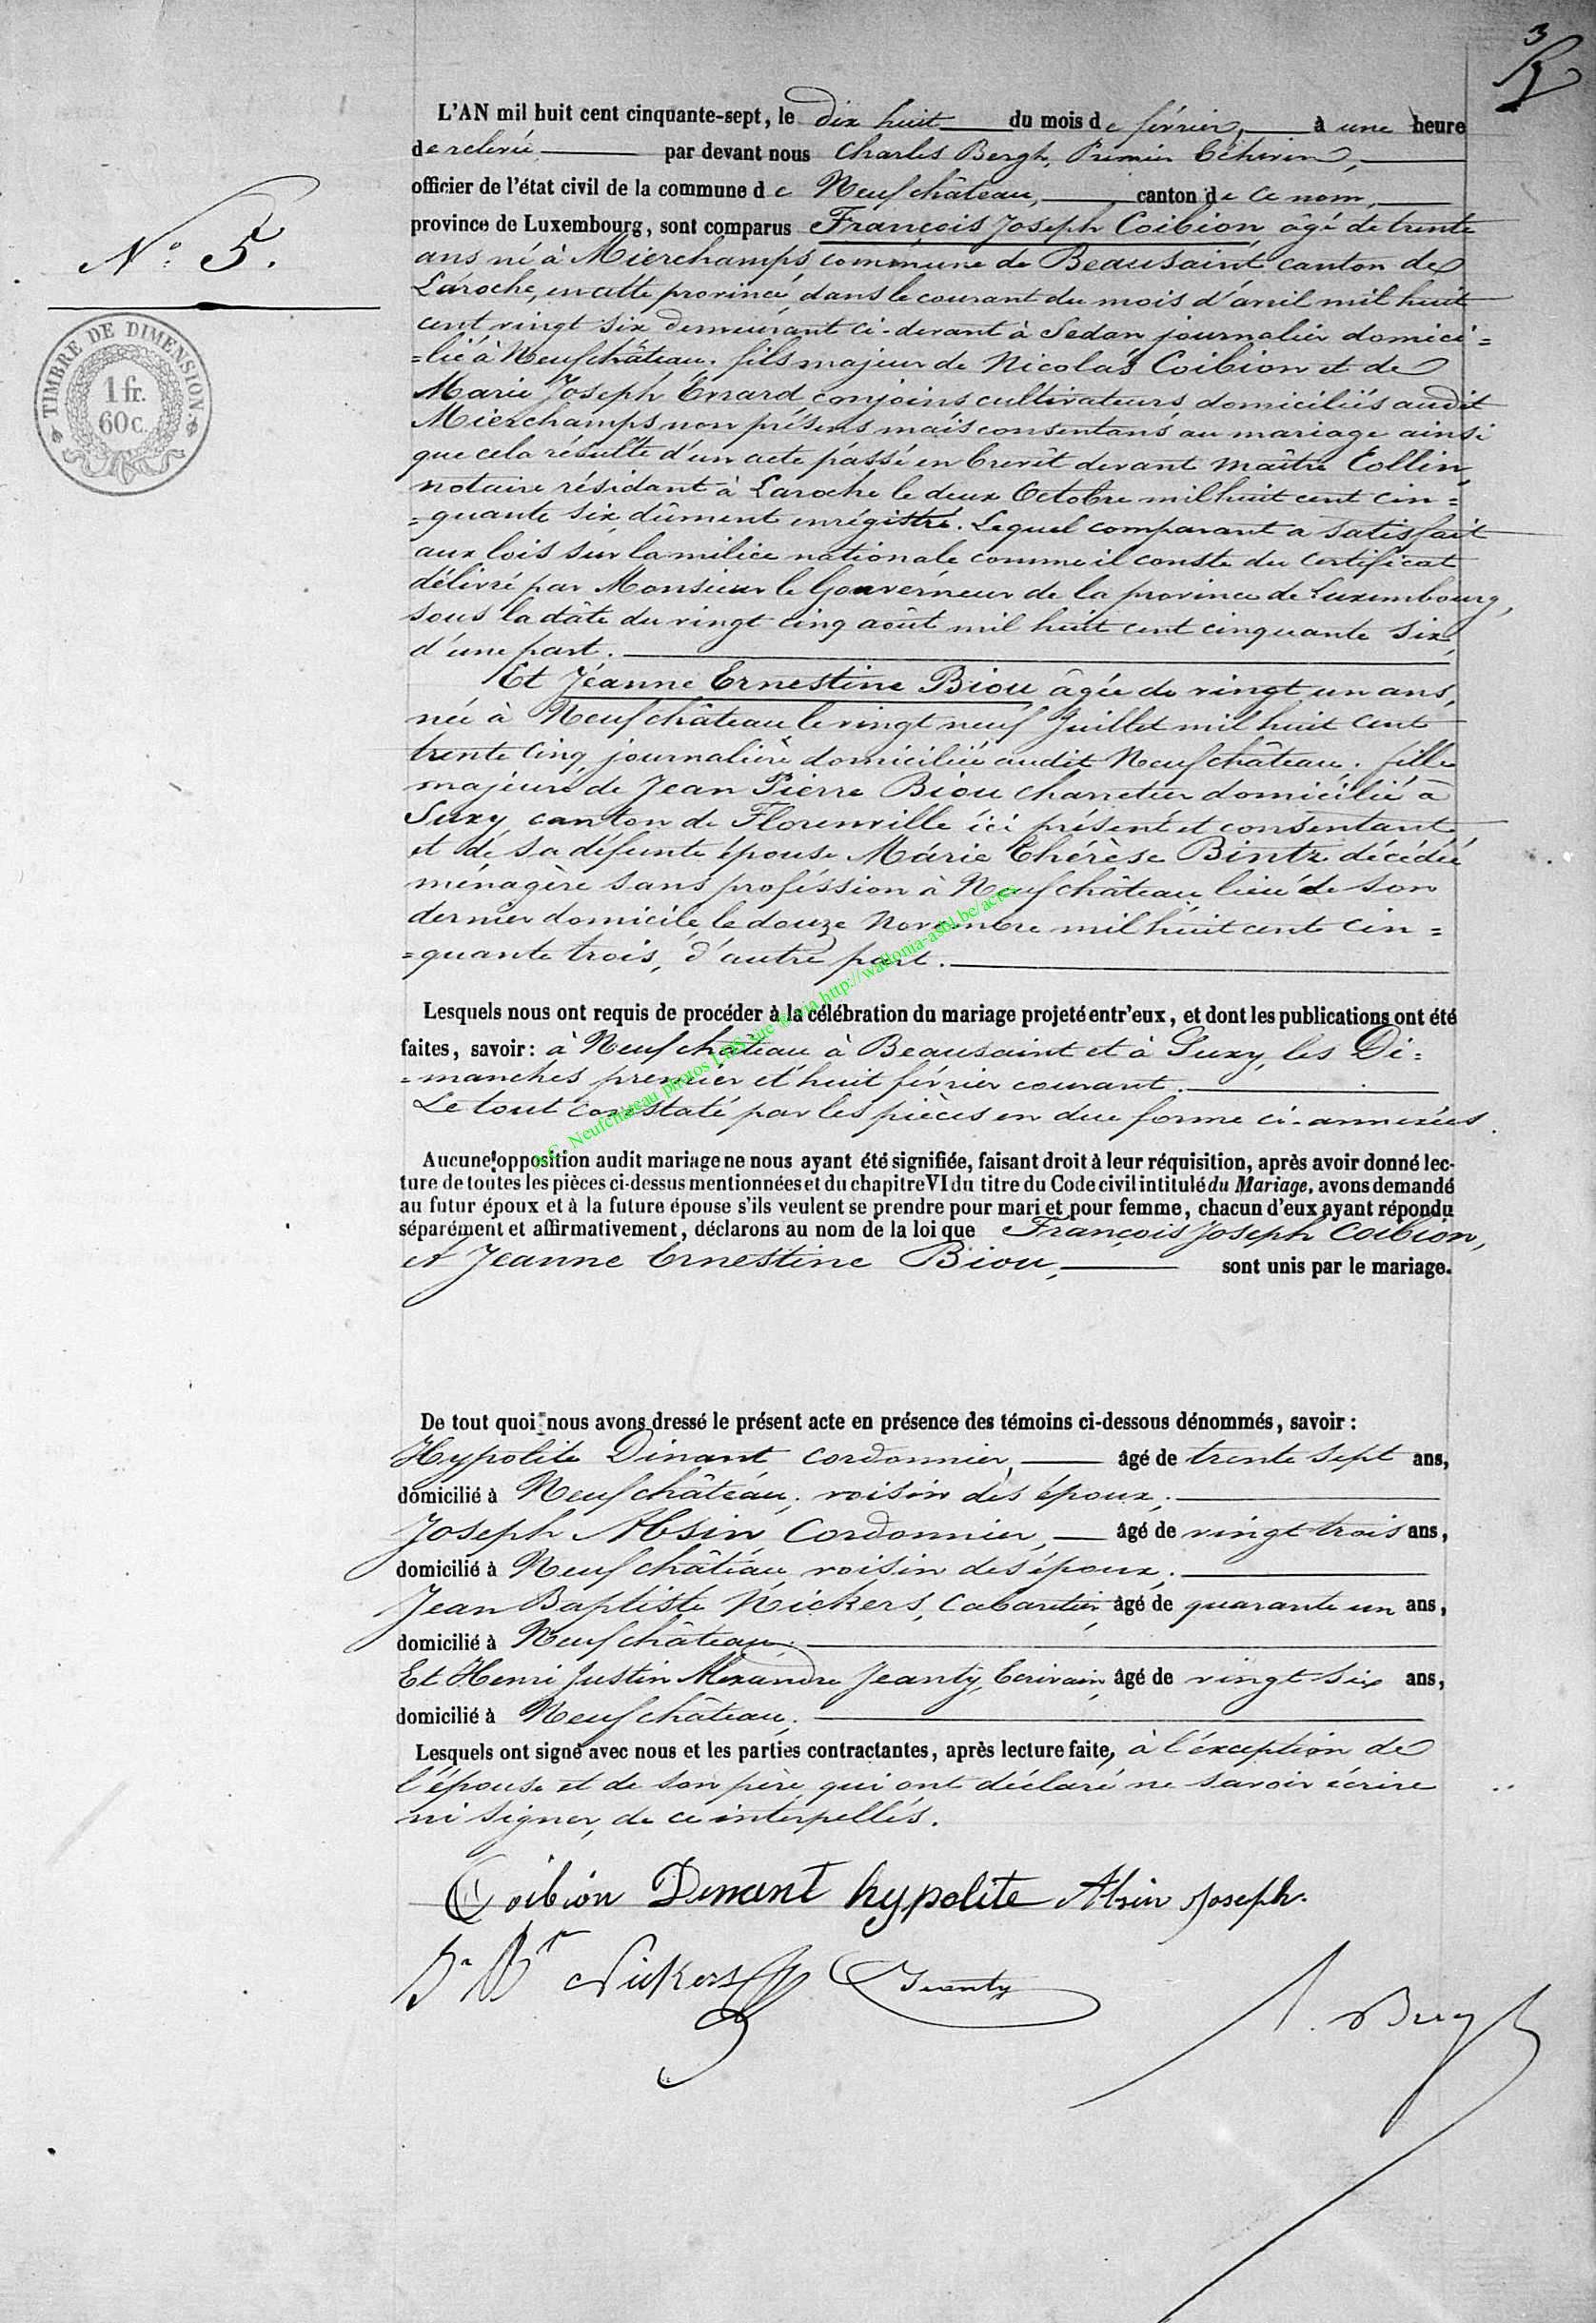 3
L'AN mil huit cent cinquante-sept, le dix huit du mois de février, à une heure
de relevée, par devant nous Charles Bergh, Premier Echevin,
officier de l'état civil de la commune de Neufchâteau, canton de ce nom,
province de Luxembourg, sont comparus François Joseph Coibion, âgé de trente
N° 5.
ans né à Mierchamps commune de Beausaint canton de
Laroche, en cette province, dans le courant du mois d'avril mil huit
cent vingt six demeurant ci-devant à Sedan journalier domici=
TIMBRE DE DIMENSION
1 fr.
60 c.
=lié à Neufchâteau. fils majeur de Nicolas Coibion et de
Marie Joseph Evrard conjoins cultivateurs domiciliés audit
Mierchamps non présens mais consentans au mariage ainsi
que cela résulte d'un acte passé en brevêt devant Maître Collin,
notaire résidant à Laroche le deux Octobre mil huit cent cin=
=quante six dûment enrégistré. Lequel comparant a satisfait
aux lois sur la milice nationale comme il conste du certificat
délivré par Monsieur le Gouverneur de la province de Luxembourg,
sous la dâte du vingt cinq août mil huit cent cinquante six,
d'une part.
Et Jeanne Ernestine Biou âgée de vingt un ans,
née à Neufchâteau le vingt neuf Juillet mil huit cent
trente cinq journalière domiciliée audit Neufchâteau. fille
majeure de Jean Pierre Biou charretier domicilié à
Suxy canton de Florenville ici présent et consentant
et de sa défunte épouse Marie Thérèse Bintz décédée
ménagère sans proféssion à Neufchâteau lieu de son
dernier domicile le douze Novembre mil huit cent cin=
=quante trois, d'autre part.
A.C. Neufchâteau photos LDS site @ via http://wallonia-asbl.be/actes
Lesquels nous ont requis de procéder à la célébration du mariage projeté entr'eux, et dont les publications ont été
faites, savoir: à Neufchâteau à Beausaint et à Suxy, les Di=
=manches premier et huit février courant.
Le tout constaté par les pièces en due forme ci-annexées.
Aucune opposition audit mariage ne nous ayant été signifiée, faisant droit à leur réquisition, après avoir donné lec-
ture de toutes les pièces ci-dessus mentionnées et du chapitre VI du titre du Code civil intitulé du Mariage, avons demandé
au futur époux et à la future épouse s'ils veulent se prendre pour mari et pour femme, chacun d'eux ayant répondu
séparément et affirmativement, déclarons au nom de la loi que François Joseph Coibion,
et Jeanne Ernestine Biou, sont unis par le mariage.
De tout quoi nous avons dressé le présent acte en présence des témoins ci-dessous dénommés, savoir :
Hypolite Dinant cordonnier, âgé de trente sept ans,
domicilié à Neufchâteau, voisin des époux.
Joseph Absin, Cordonnier, âgé de vingt trois ans,
domicilié à Neufchâteau voisin des époux.
Jean Baptiste Nickers, Cabaretier, âgé de quarante un ans,
domicilié à Neufchâteau.
Et Henri Justin Alexandre Jeanty, Ecrivain, âgé de vingt six ans,
domicilié à Neufchâteau.
Lesquels ont signé avec nous et les parties contractantes, après lecture faite, à l'exception de
l'épouse et de son père qui ont déclaré ne savoir écrire
ni signer, de ce interpellés.
Coibion Denant hypolite Absin Joseph.
Nickers Jeanty
Bergh